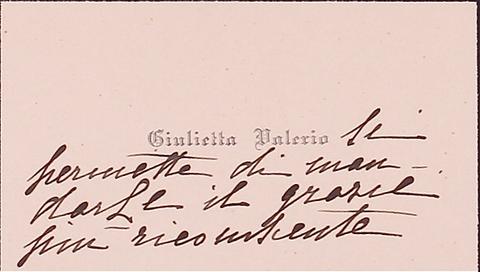 Giulietta Valerio si
permette di man-
darLe il grazie
più riconoscente